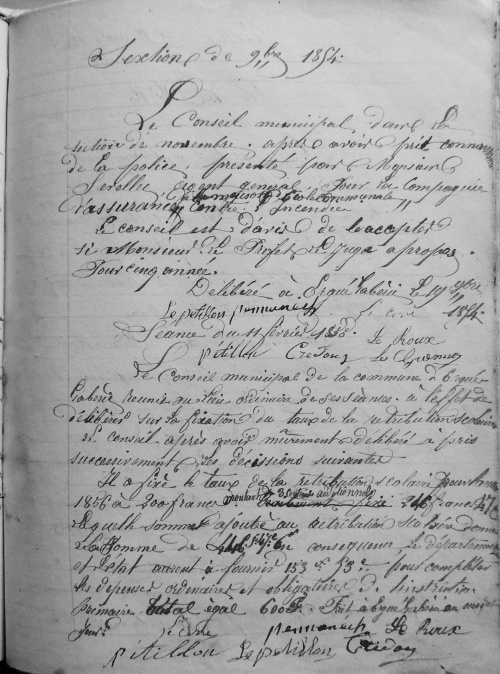 Sextion de 9bre 1854.
Le Conseil municipal, dans la
sution de novembre. après avoir prit connai
de la police, présenté par Monsieur
agent general, pour la compagnie
d'assurance contre l'incendie
la maison d'école communale
Le conseil est d'avis de l'accepter
si Monsieur le Préfet le juge apropos.
Pour cinq annee.
Délibéré à Ergué Gabéric le 19 9bre
1854.
Le petillon
Seance du 11 février 1855. Le Roux
Pétillon Credou
Le Conseil municipal de la commune d'Ergué
Gaberic reunie au lieu ordinaire de ses séances. a l'effet de
déliberer sur la fixation du taux de la retribution scolaire
Le conseil après avoir mûrement delibéré a pris
successivement les décisions suivantes
Il a fixé le taux de la retribution scolaire pour l'année
1856 à 200 franc
Laquelle somme ajouté au retribution scolaire donne
La somme de en consequence, le département
et l'état auront à fournir 153 53 pour completter
les depenses ordinaires et obligatoire de l'instrution
primaire total égal 600F. Fait à
jour
Le Roux
Pétillon Le petillon Credou